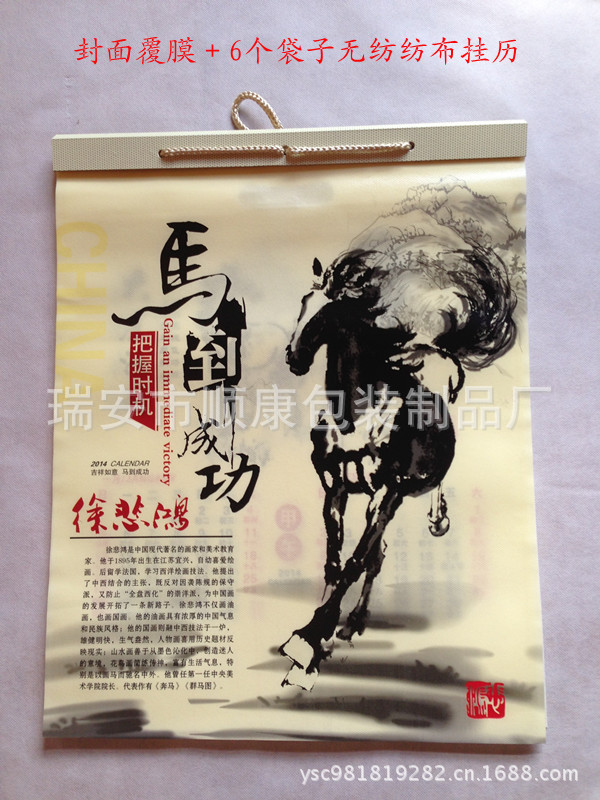 封面覆膜+6个袋子无纺纺布挂历
CHINA
馬到成功
Gain an immediate victory
把握时机
瑞安市顺康包装制品厂
2014 CALENDAR
吉祥如意 马到成功
徐悲鸿
徐悲鸿是中国现代著名的画家和美术教育
家。他于1895年出生在江苏宜兴，自幼喜爱绘
画。后留学法国，学习西洋绘画技法。他提出
了中西结合的主张，既反对因袭陈规的保守
派，又防止“全盘西化”的崇洋派，为中国画
的发展开拓了一条新路子。徐悲鸿不仅画油
画，也画国画。他的油画具有浓厚的中国气息
和民族风格；他的国画则融中西技法于一炉，
雄健明快，生气盎然，人物画善用历史题材反
映现实；山水画善于从墨色沁化中，创造迷人
的意境，花鸟画简练传神，富有生活气息，特
别是以画马而驰名中外。他曾任第一任中央美
术学院院长。代表作有《奔马》《群马图》。
ysc981819282.cn.1688.com